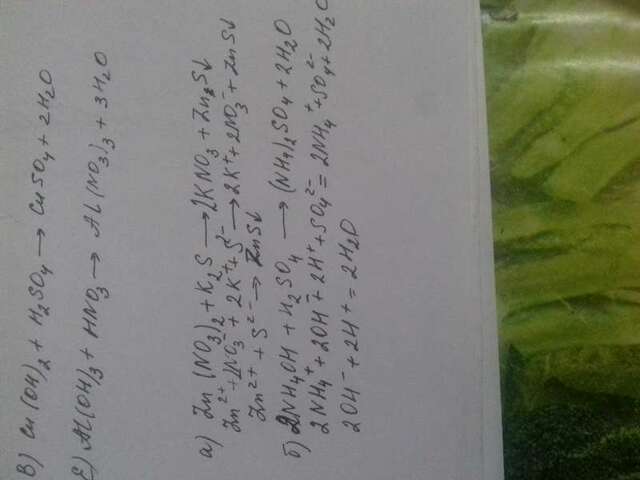 В) Cu(OH)₂ + H₂SO₄ → CuSO₄ + 2H₂O
Е) Al(OH)₃ + HNO₃ → Al(NO₃)₃ + 3H₂O
а) Zn(NO₃)₂ + K₂S → 2KNO₃ + ZnS↓
Zn²⁺ + 2NO₃⁻ + 2K⁺ + S²⁻ → 2K⁺ + 2NO₃⁻ + ZnS↓
Zn²⁺ + S²⁻ → ZnS↓
б) 2NH₄OH + H₂SO₄ → (NH₄)₂SO₄ + 2H₂O
2NH₄⁺ + 2OH⁻ + 2H⁺ + SO₄²⁻ = 2NH₄⁺ + SO₄²⁻ + 2H₂O
2OH⁻ + 2H⁺ = 2H₂O